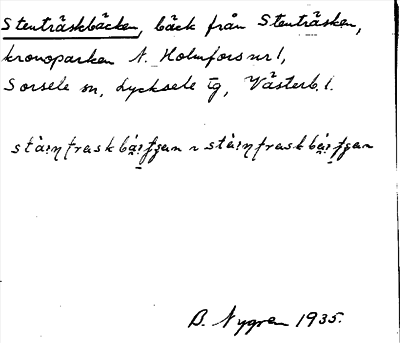 Stenträskbäcken, bäck från Stenträsken,
kronoparken N. Holmfors nr 1,
Sorsele sn, Lycksele tg, Västerb. l.
B. Nygren 1935.